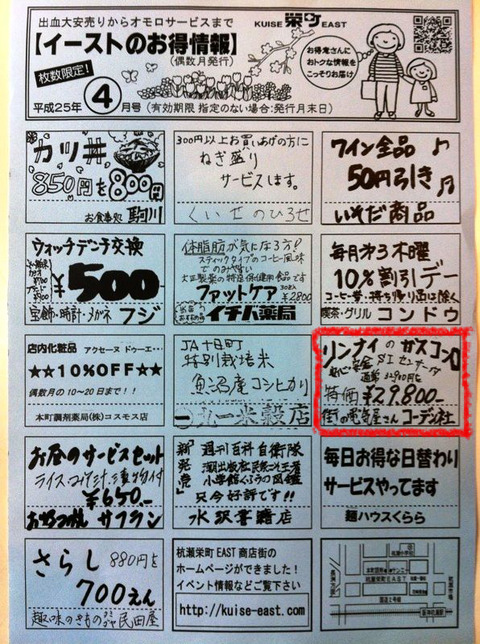 出血大安売りからオモロサービスまで
KUISE 栄町 EAST
【イーストのお得情報】
(偶数月発行)
お得意さんに
おトクな情報を
こっそりお届け
枚数限定!
平成25年 4 月号 (有効期限 指定のない場合:発行月末日)
カツ丼
850円を800円
お食事処 駒川
300円以上お買いあげの方に
ねぎ盛り
サービスします。
くいせのひろせ
ワイン全品
50円引き
いそだ商品
ウォッチデンチ交換
¥500
宝飾・時計・メガネ フジ
体脂肪が気になる方!
スティックタイプのコーヒー風味
でのみやすい
大正製薬の特定保健用食品です
ファットケア 30袋入 ¥2800
イチハ薬局
毎月第3木曜
10%割引デー
コーヒー券・持ち帰り品は除く
喫茶・グリル コンドウ
店内化粧品 アクセーヌ ドゥーエ…
★☆10%OFF★☆
偶数月の10~20日まで!
本町調剤薬局(株)コスモス店
JA十日町
特別栽培米
魚沼産コシヒカリ
丸一米穀店
リンナイのガスコンロ
安心・安全 Siセンサー付
通常 32900円を
特価 ¥29,800-
街の電気屋さん コーデン社
お昼のサービスセット
ライス・コーヒー・漬物付
¥650-
サフラン
新発売
週刊百科自衛隊
小学館くらべる図鑑
只今好評です!!
水沢書籍店
毎日お得な日替わり
サービスやってます
麺ハウスくらら
さらし 880円を
700えん
趣味のきもの 民田屋
杭瀬栄町 EAST 商店街の
ホームページができました!
イベント情報などご覧下さい
http://kuise-east.com/
杭瀬栄町EAST
国道2号線